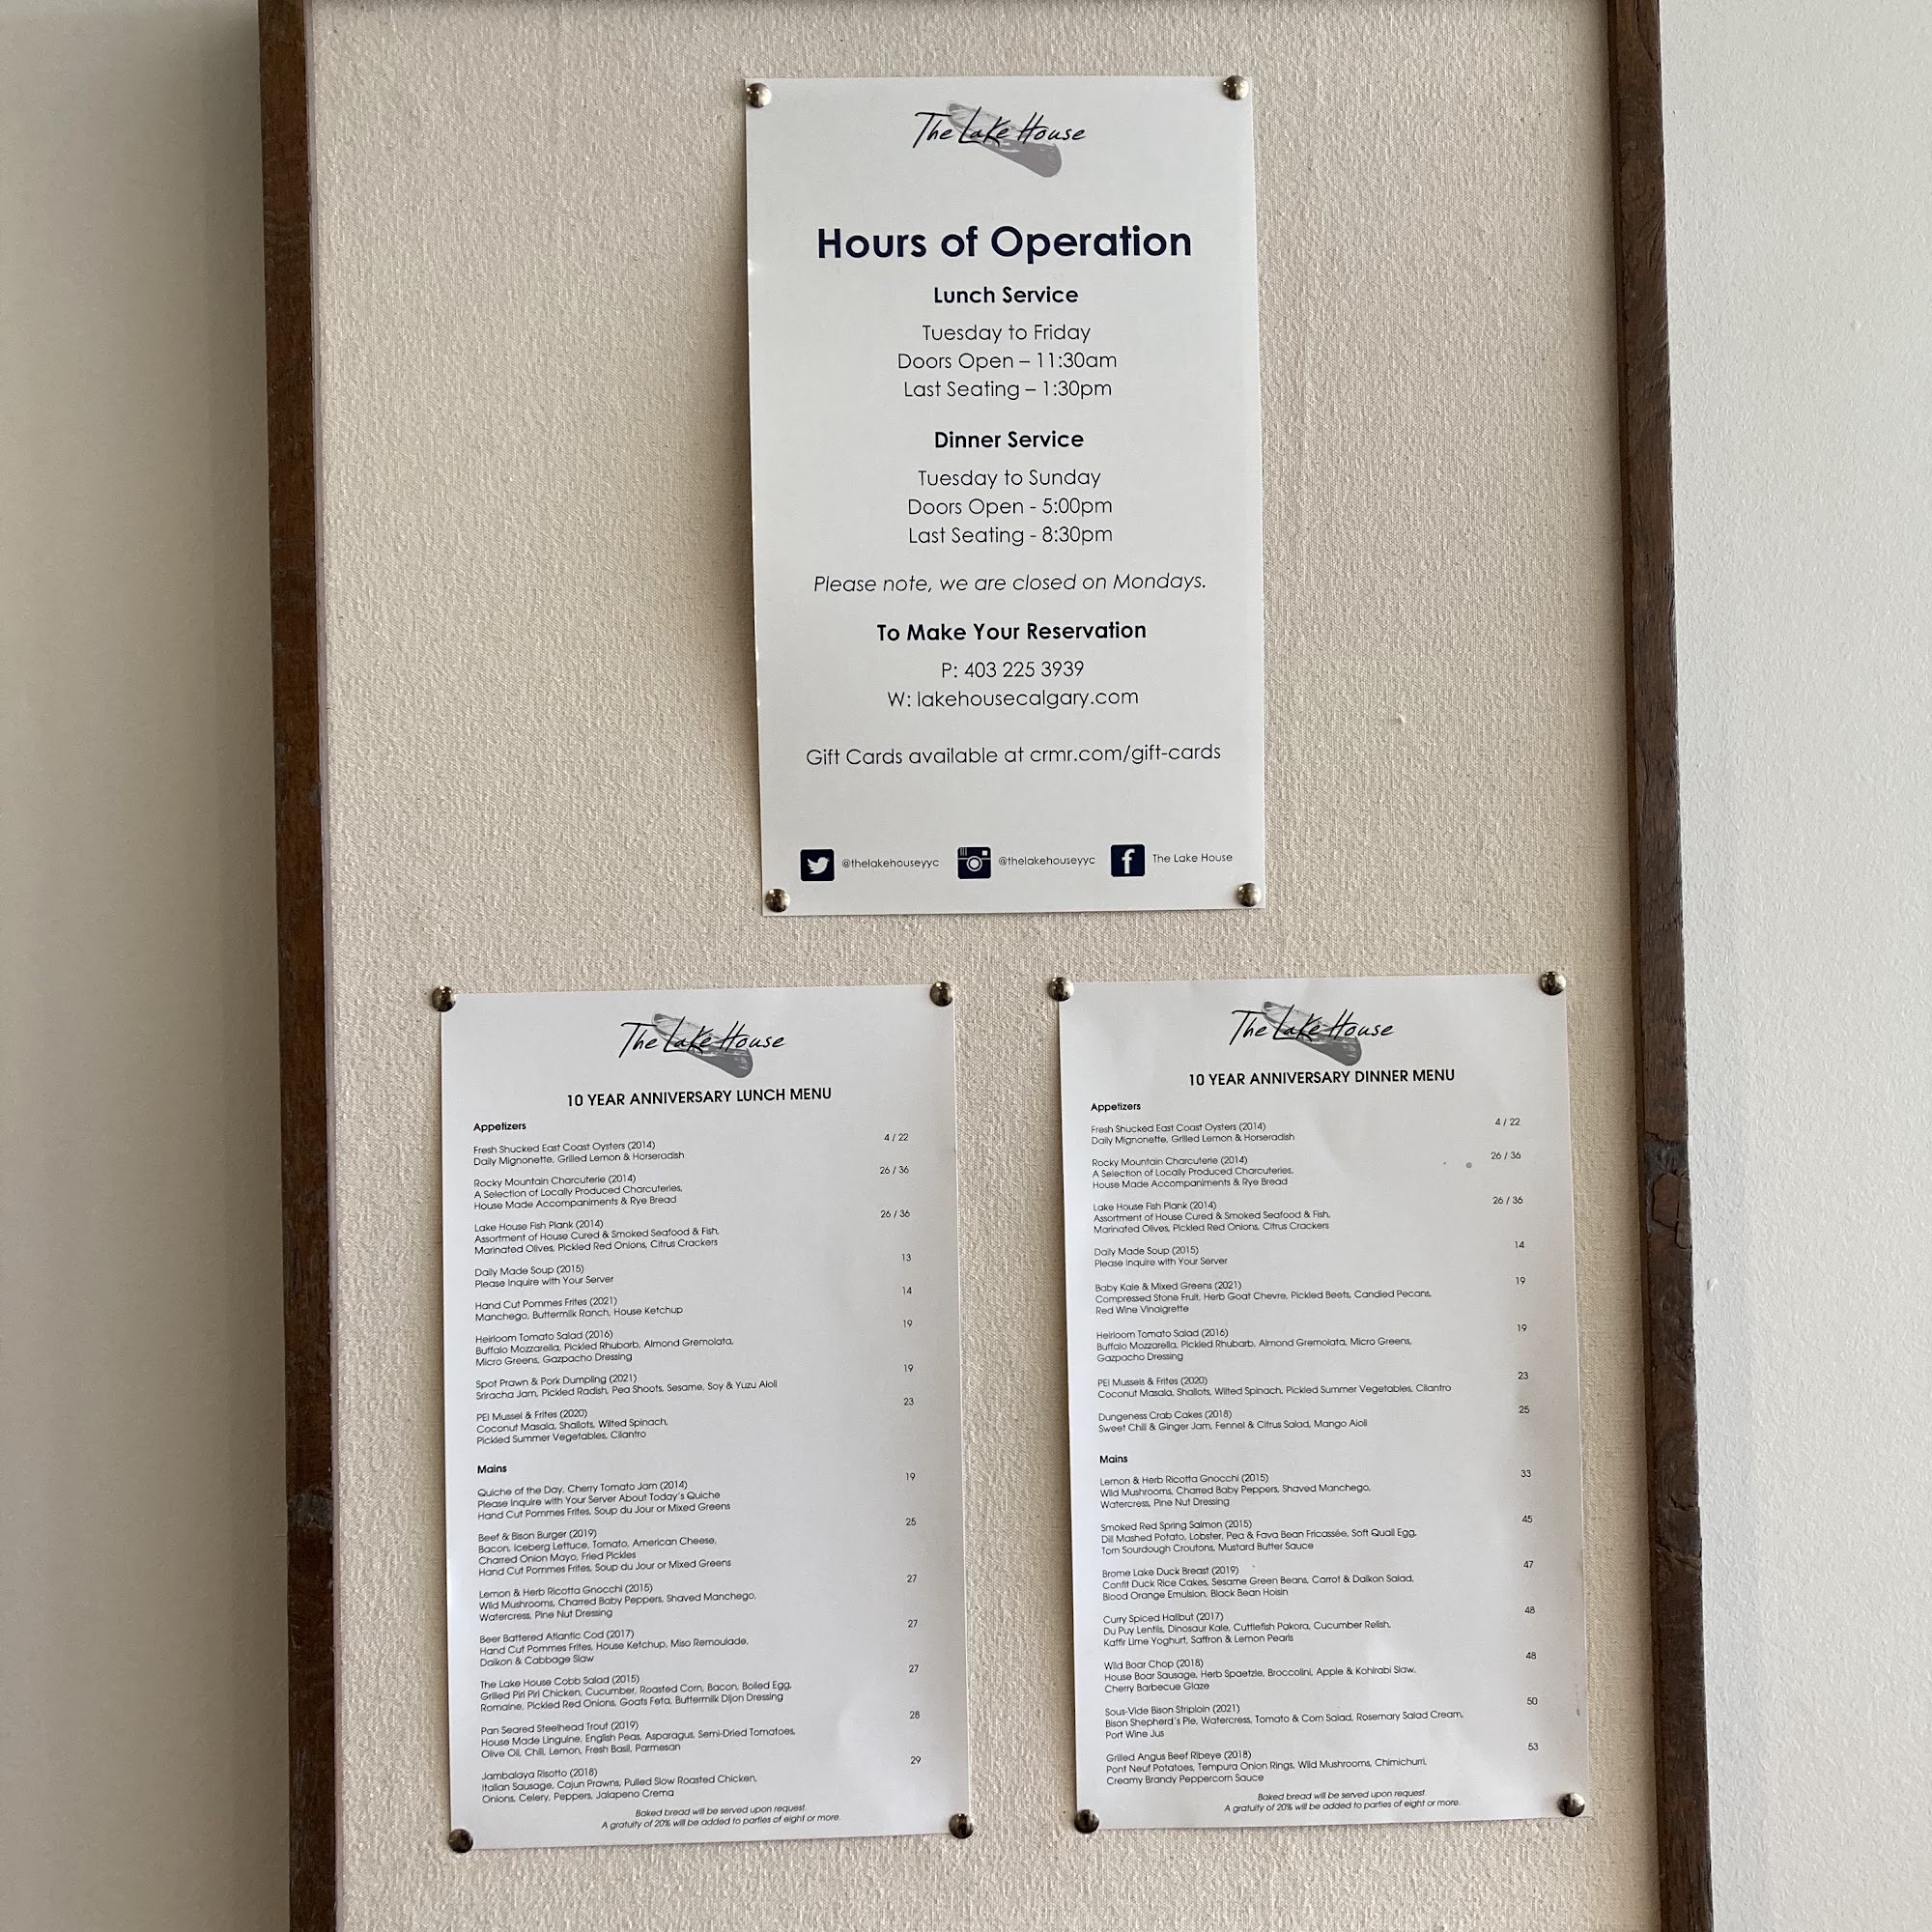 The Lake House
Hours of Operation
Lunch Service
Tuesday to Friday
Doors Open – 11:30am
Last Seating – 1:30pm
Dinner Service
Tuesday to Sunday
Doors Open - 5:00pm
Last Seating - 8:30pm
Please note, we are closed on Mondays.
To Make Your Reservation
P: 403 225 3939
W: lakehousecalgary.com
Gift Cards available at crmr.com/gift-cards
@thelakehouseyyc @thelakehouseyyc The Lake House
The Lake House
10 YEAR ANNIVERSARY LUNCH MENU
Appetizers
Fresh Shucked East Coast Oysters (2014) 4 / 22
Daily Mignonette, Grilled Lemon & Horseradish
Rocky Mountain Charcuterie (2014) 26 / 36
A Selection of Locally Produced Charcuteries,
House Made Accompaniments & Rye Bread
Lake House Fish Plank (2014) 26 / 36
Assortment of House Cured & Smoked Seafood & Fish,
Marinated Olives, Pickled Red Onions, Citrus Crackers
Daily Made Soup (2015) 13
Please Inquire with Your Server
Hand Cut Pommes Frites (2021) 14
Manchego, Buttermilk Ranch, House Ketchup
Heirloom Tomato Salad (2016) 19
Buffalo Mozzarella, Pickled Rhubarb, Almond Gremolata,
Micro Greens, Gazpacho Dressing
Spot Prawn & Pork Dumpling (2021) 19
Sriracha Jam, Pickled Radish, Pea Shoots, Sesame, Soy & Yuzu Aioli
PEI Mussel & Frites (2020) 23
Coconut Masala, Shallots, Wilted Spinach,
Pickled Summer Vegetables, Cilantro
Mains
Quiche of the Day, Cherry Tomato Jam (2014) 19
Please Inquire with Your Server About Today's Quiche
Hand Cut Pommes Frites, Soup du Jour or Mixed Greens
Beef & Bison Burger (2019) 25
Bacon, Iceberg Lettuce, Tomato, American Cheese,
Charred Onion Mayo, Fried Pickles
Hand Cut Pommes Frites, Soup du Jour or Mixed Greens
Lemon & Herb Ricotta Gnocchi (2015) 27
Wild Mushrooms, Charred Baby Peppers, Shaved Manchego,
Watercress, Pine Nut Dressing
Beer Battered Atlantic Cod (2017) 27
Hand Cut Pommes Frites, House Ketchup, Miso Remoulade,
Daikon & Cabbage Slaw
The Lake House Cobb Salad (2015) 27
Grilled Piri Piri Chicken, Cucumber, Roasted Corn, Bacon, Boiled Egg,
Romaine, Pickled Red Onions, Goats Feta, Buttermilk Dijon Dressing
Pan Seared Steelhead Trout (2019) 28
House Made Linguine, English Peas, Asparagus, Semi-Dried Tomatoes,
Olive Oil, Chili, Lemon, Fresh Basil, Parmesan
Jambalaya Risotto (2018) 29
Italian Sausage, Cajun Prawns, Pulled Slow Roasted Chicken,
Onions, Celery, Peppers, Jalapeno Crema
Baked bread will be served upon request.
A gratuity of 20% will be added to parties of eight or more.
The Lake House
10 YEAR ANNIVERSARY DINNER MENU
Appetizers
Fresh Shucked East Coast Oysters (2014) 4 / 22
Daily Mignonette, Grilled Lemon & Horseradish
Rocky Mountain Charcuterie (2014) 26 / 36
A Selection of Locally Produced Charcuteries,
House Made Accompaniments & Rye Bread
Lake House Fish Plank (2014) 26 / 36
Assortment of House Cured & Smoked Seafood & Fish,
Marinated Olives, Pickled Red Onions, Citrus Crackers
Daily Made Soup (2015) 14
Please Inquire with Your Server
Baby Kale & Mixed Greens (2021) 19
Compressed Stone Fruit, Herb Goat Chevre, Pickled Beets, Candied Pecans,
Red Wine Vinaigrette
Heirloom Tomato Salad (2016) 19
Buffalo Mozzarella, Pickled Rhubarb, Almond Gremolata, Micro Greens,
Gazpacho Dressing
PEI Mussels & Frites (2020) 23
Coconut Masala, Shallots, Wilted Spinach, Pickled Summer Vegetables, Cilantro
Dungeness Crab Cakes (2018) 25
Sweet Chili & Ginger Jam, Fennel & Citrus Salad, Mango Aioli
Mains
Lemon & Herb Ricotta Gnocchi (2015) 33
Wild Mushrooms, Charred Baby Peppers, Shaved Manchego,
Watercress, Pine Nut Dressing
Smoked Red Spring Salmon (2015) 45
Dill Mashed Potato, Lobster, Pea & Fava Bean Fricassée, Soft Quail Egg,
Torn Sourdough Croutons, Mustard Butter Sauce
Brome Lake Duck Breast (2019) 47
Confit Duck Rice Cakes, Sesame Green Beans, Carrot & Daikon Salad,
Blood Orange Emulsion, Black Bean Hoisin
Curry Spiced Halibut (2017) 48
Du Puy Lentils, Dinosaur Kale, Cuttlefish Pakora, Cucumber Relish,
Kaffir Lime Yoghurt, Saffron & Lemon Pearls
Wild Boar Chop (2018) 48
House Boar Sausage, Herb Spaetzle, Broccolini, Apple & Kohlrabi Slaw,
Cherry Barbecue Glaze
Sous-Vide Bison Striploin (2021) 50
Bison Shepherd's Pie, Watercress, Tomato & Corn Salad, Rosemary Salad Cream,
Port Wine Jus
Grilled Angus Beef Ribeye (2018) 53
Pont Neuf Potatoes, Tempura Onion Rings, Wild Mushrooms, Chimichurri,
Creamy Brandy Peppercorn Sauce
Baked bread will be served upon request.
A gratuity of 20% will be added to parties of eight or more.